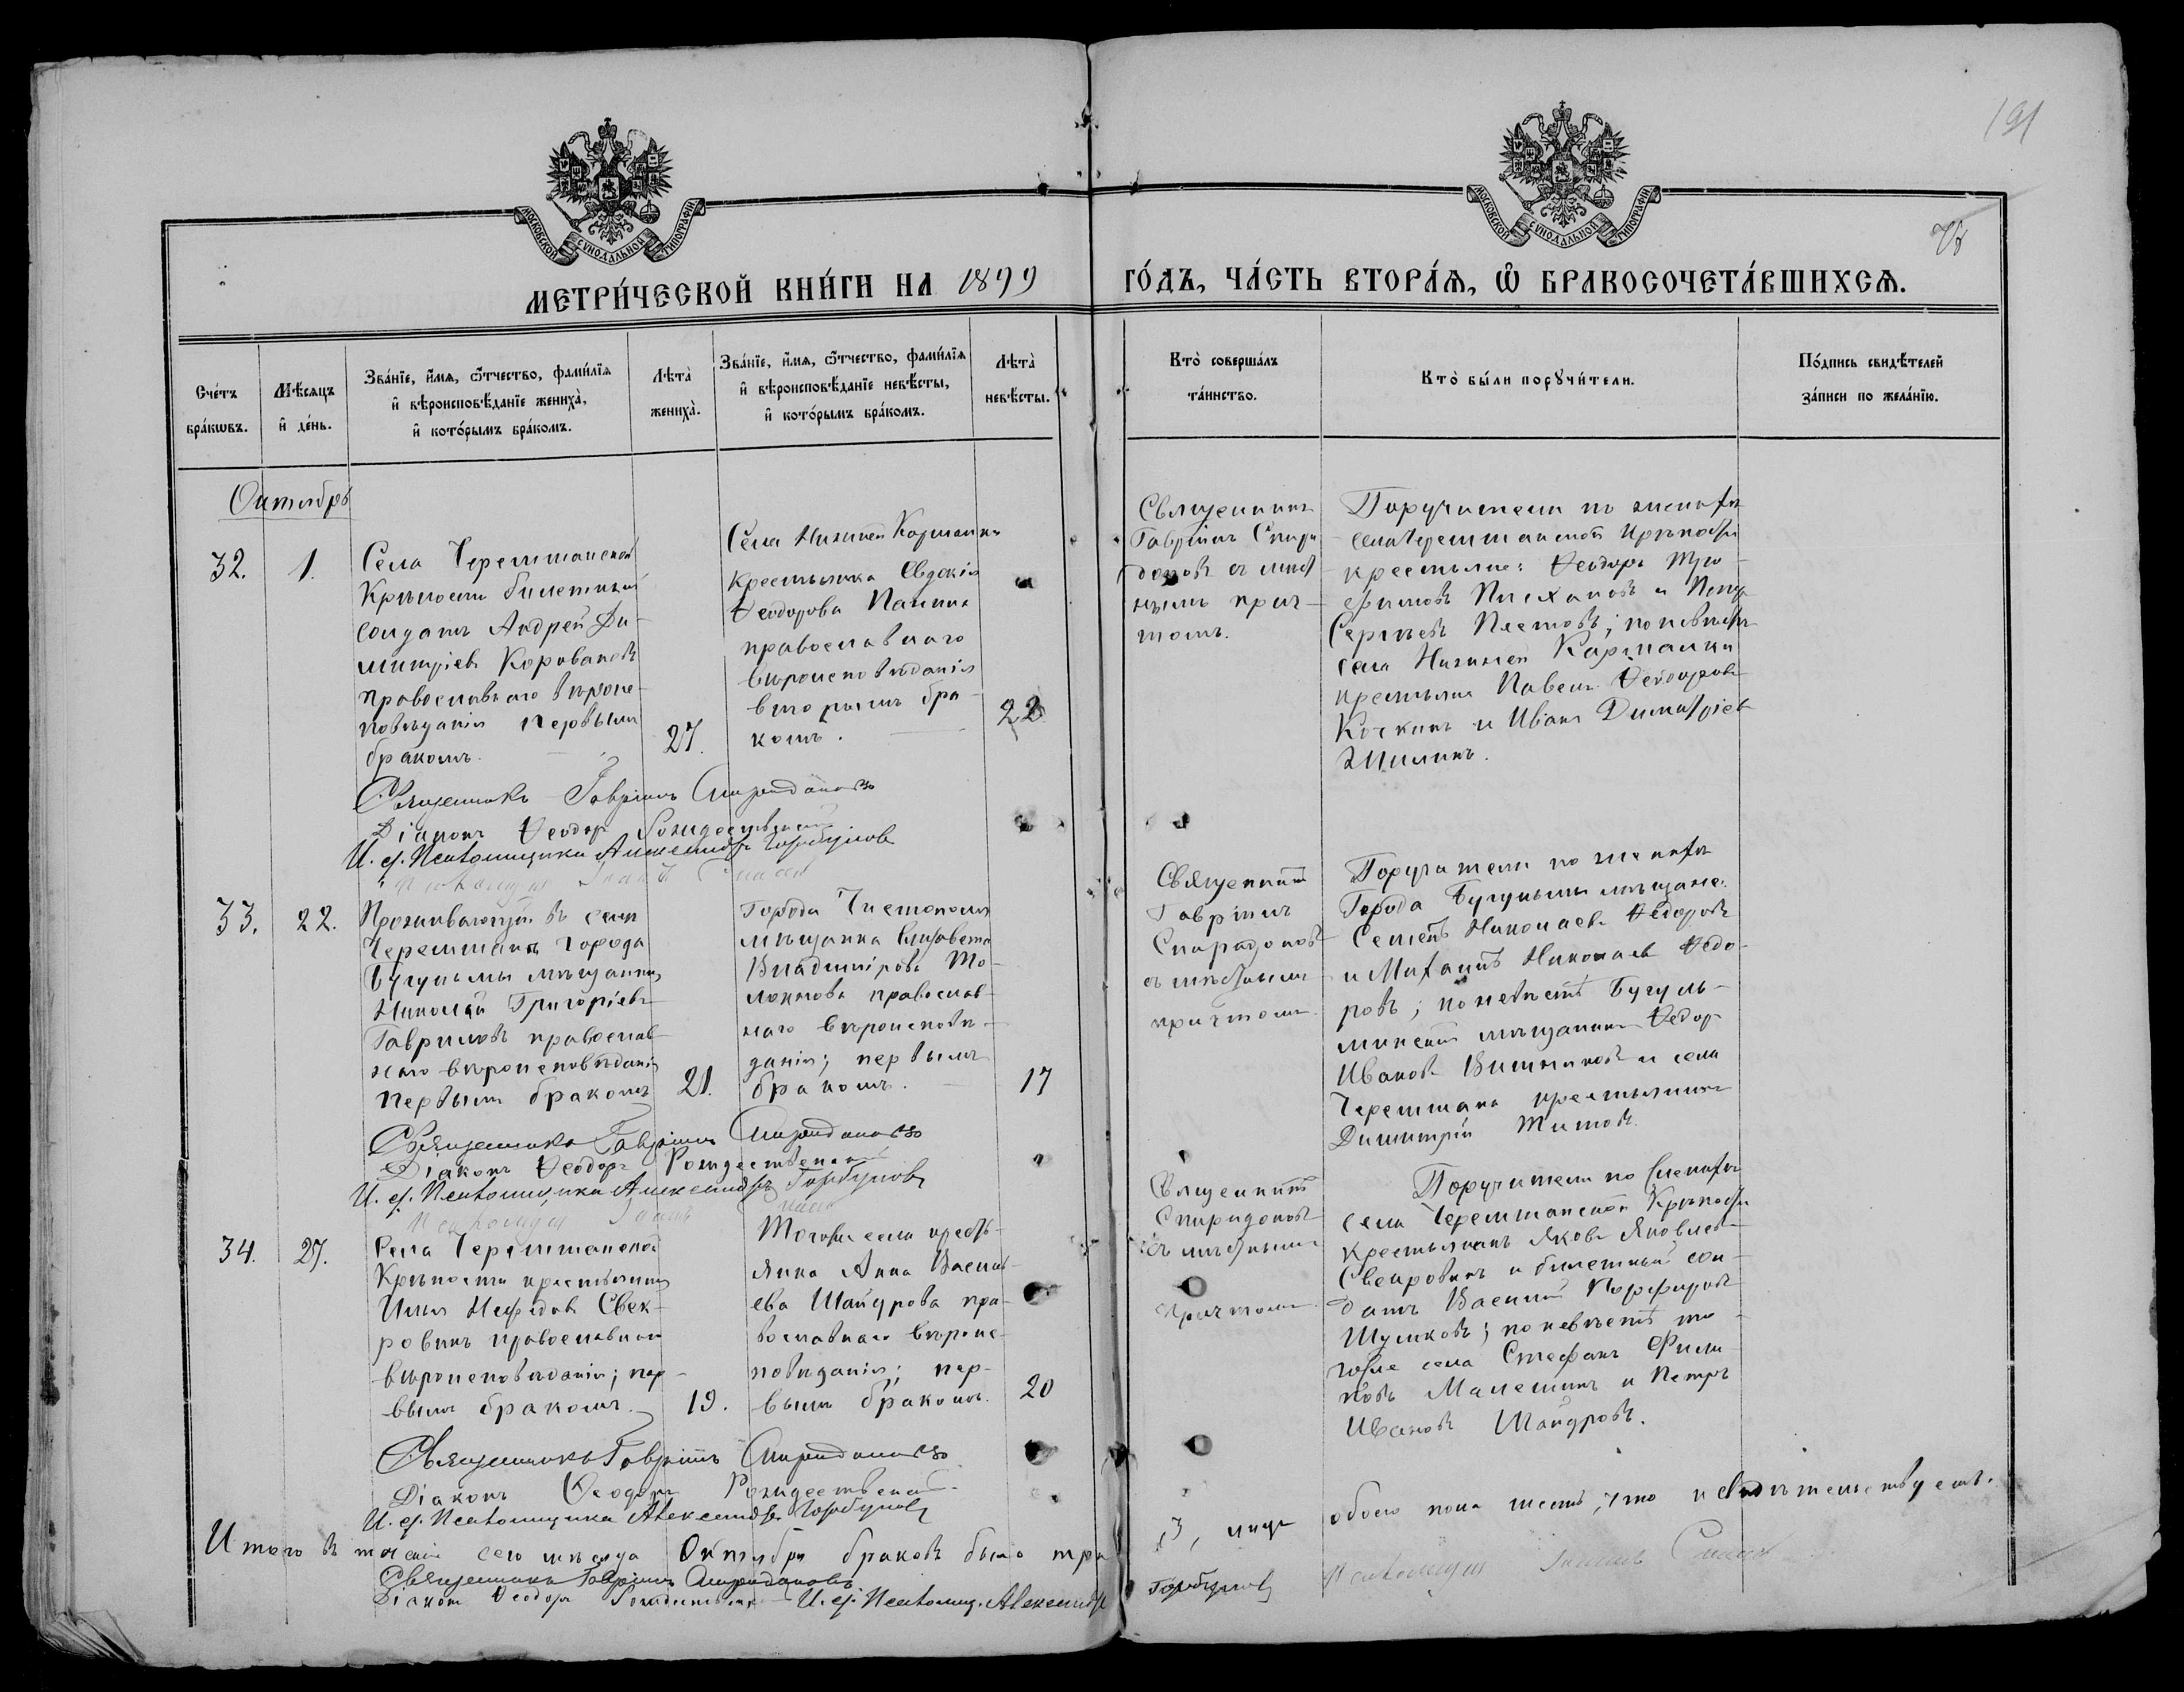 191
76
МОСКОВСКОЙ СѴНОДАЛЬНОЙ ТИПОГРАФІИ
МОСКОВСКОЙ СѴНОДАЛЬНОЙ ТИПОГРАФІИ
МЕТРИ́ЧЕСКОЙ КНИ́ГИ НА 1899 ГО́ДЪ, ЧА́СТЬ ВТОРА́Я, Ѿ БРАКОСОЧЕТА́ВШИХСЯ.
Сче́тъ
бра́кωвъ.
Мѣ́сяцъ
и҆ де́нь.
Зва́нїе, и҆́мя, ѻ҆́тчество, фами́лїя
и҆ вѣроисповѣ́данїе жениха̀,
и҆ кото́рымъ бра́комъ.
Лѣта̀
жениха̀.
Зва́нїе, и҆́мя, ѻ҆́тчество, фами́лїя
и҆ вѣроисповѣ́данїе невѣ́сты,
и҆ кото́рымъ бра́комъ.
Лѣта̀
невѣ́сты.
Кто̀ соверша́лъ
та́инство.
Кто̀ бы́ли порꙋчи́тели.
По́дпись свидѣ́телей
за́писи по жела́нїю.
Октябрь
32.
1.
Села Черемшанской
Крѣпости билетный
солдатъ Андрей Ди-
митріевъ Коровановъ
православнаго вѣроис-
повѣданія первымъ
бракомъ.
27.
Села Нижней Кармалки
крестьянка Евдокія
Ѳеодорова Панина
православнаго
вѣроисповѣданія
вторымъ бра-
комъ.
22
Священникъ
Гавріилъ Спири
доновъ съ мѣст
нымъ прич-
томъ.
Поручители по женихѣ
села Черемшанской Крѣпости
крестьяне: Ѳеодоръ Тро-
фимовъ Плехановъ и Петръ
Сергѣевъ Пестовъ; по невѣстѣ
села Нижней Кармалки
крестьяне Павелъ Ѳеодоровъ
Кочкинъ и Иванъ Димитріевъ
Шилинъ.
Священникъ Гавріилъ Спиридоновъ
Діаконъ Ѳеодоръ Рождественскій
И. д. Псаломщика Александръ Горбуновъ
33.
22.
Проживающій въ селѣ
Черемшанѣ города
Бугульмы мѣщанинъ
Николай Григорьевъ
Гавриловъ православ-
наго вѣроисповѣданія
первымъ бракомъ
21.
города Чистополя
мѣщанка Елизавета
Владимірова То-
локнова православ-
наго вѣроисповѣ-
данія; первымъ
бракомъ.
17
Священникъ
Гавріилъ
Спиридоновъ
съ мѣстнымъ
причтомъ.
Поручители по женихѣ
Города Бугульмы мѣщане:
Семенъ Николаевъ Ѳедоровъ
и Михаилъ Николаевъ Ѳедо-
ровъ; по невѣстѣ Бугуль-
минскій мѣщанинъ Ѳедоръ
Ивановъ Вишняковъ и села
Черемшана крестьянинъ
Димитрій Титовъ.
Священникъ Гавріилъ Спиридоновъ
Діаконъ Ѳеодоръ Рождественскій
И. д. Псаломщика Александръ Горбуновъ
34.
27.
Села Черемшанской
Крѣпости крестьянинъ
Илья Нефедовъ Свек-
ровинъ православнаго
вѣроисповѣданія; пер-
вымъ бракомъ.
19.
Того же села кресть-
янка Анна Василь-
ева Шайдрова пра-
вославнаго вѣроис-
повѣданія; пер-
вымъ бракомъ.
20
Священникъ
Спиридоновъ
съ мѣстнымъ
причтомъ.
Поручители по женихѣ
села Черемшанской Крѣпости
крестьянинъ Яковъ Яковлевъ
Свекровинъ и билетный сол-
датъ Василій Порфировъ
Шумковъ; по невѣстѣ то-
го же села Стефанъ Филип-
повъ Малешинъ и Петръ
Ивановъ Шайдровъ.
Священникъ Гавріилъ Спиридоновъ
Діаконъ Ѳеодоръ Рождественскій
И. д. Псаломщика Александръ Горбуновъ
Итого въ теченіи сего мѣсяца Октября браковъ было три 3, лицъ обоего пола шесть, что и свидѣтельствуемъ.
Священникъ Гавріилъ Спиридоновъ
Діаконъ Ѳеодоръ Рождественскій И. д. Псаломщ. Александръ Горбуновъ